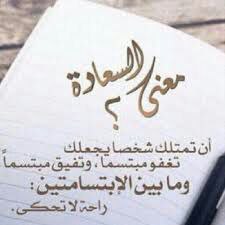 معنى السعادة
؟
أن تمتلك شخصا يجعلك
تغفو مبتسما، وتفيق مبتسماً
وما بين الإبتسامتين:
راحة لا تحكى.